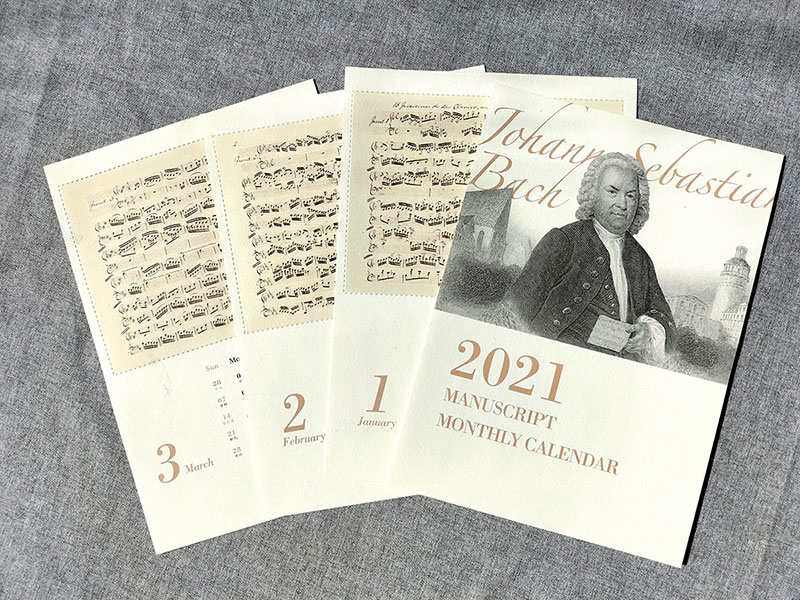 Johann Sebastian
Bach
2021
MANUSCRIPT
MONTHLY CALENDAR
1
January
2
February
3
March
Sun
28
07
14
21
28